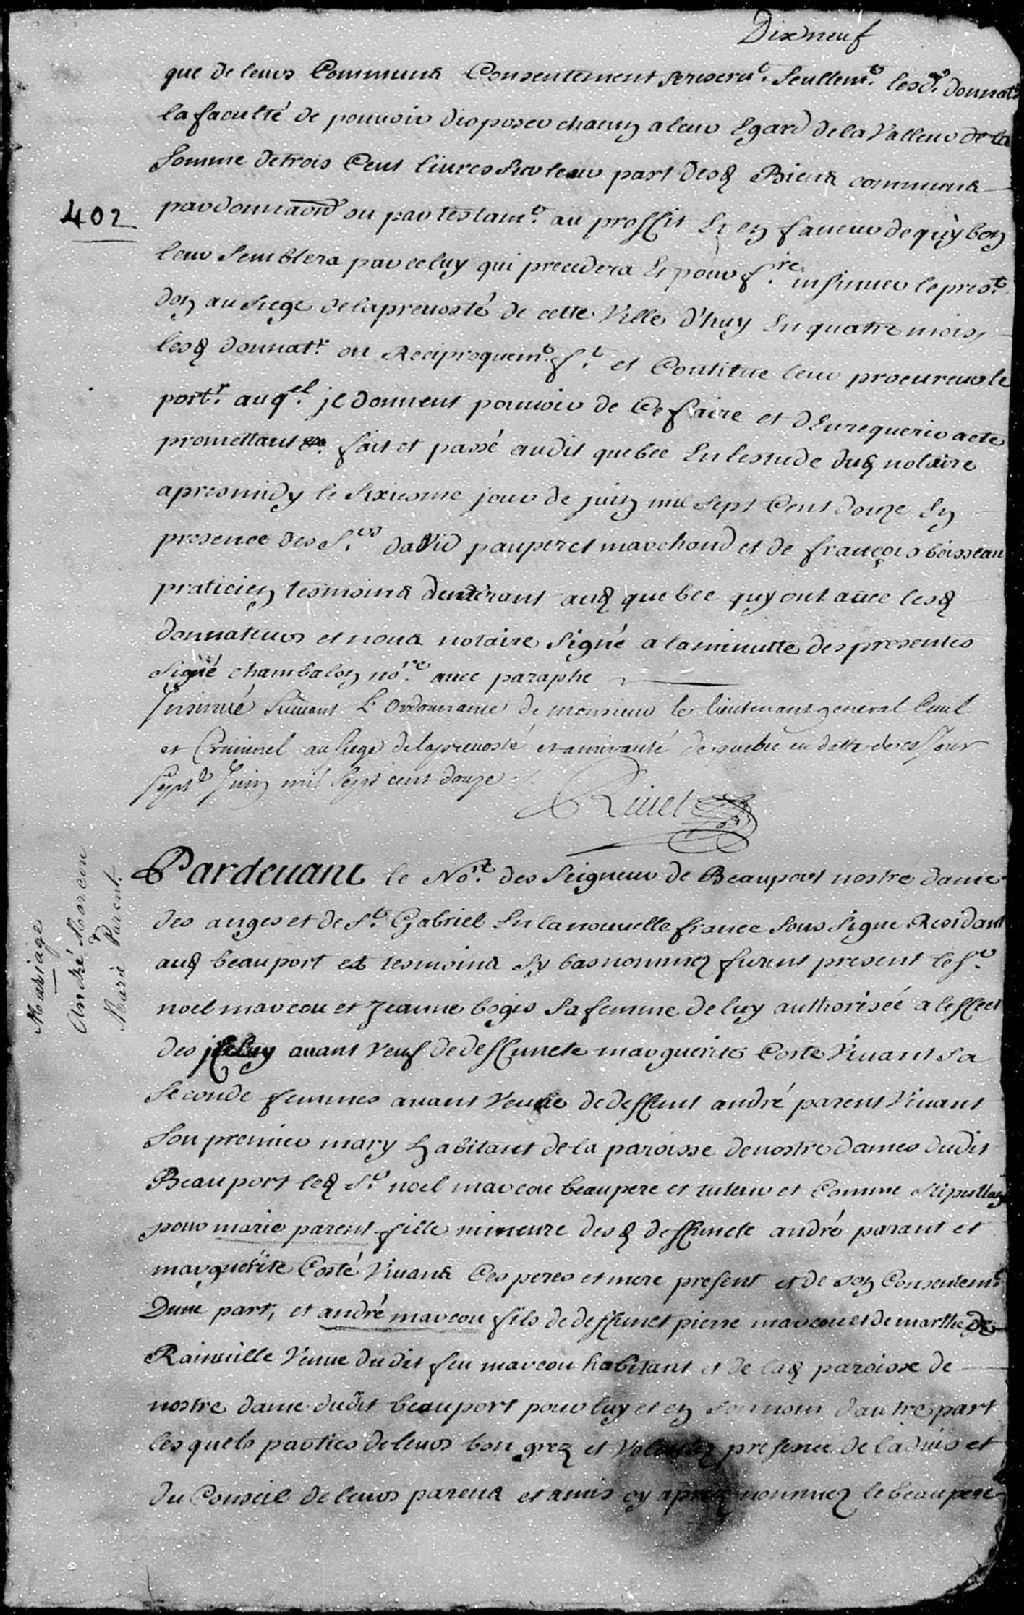 Dixneuf
que de leurs Communs Consentement reserv.t Seullem.t lesd.s donnat.rs
la faculté de pouvoir disposer chacun a leur Egard de la Valleur de la
Somme de trois Cent livres sur leur part desd Biens communs
402
par donnaõn ou par testam.t au proffit Et en faveur de quy bon
leur Semblera par celuy qui precedera Et pour f.re insinuer le pres.t
don au Siege de la prevosté de cette Ville d'huy En quatre mois,
lesd donnat.rs ont Reciproquem.t f.t et Constitué leur procureur le
port.r auq.el jl donnent pouvoir de Ce faire et d'En requerir acte
promettant &c. fait et passé audit quebec En lestude dud notaire
apresmidy le Sixiesme jour de juin mil Sept Cent douze En
presence des S.rs david pauperet marchand et de françois boisseau
praticien tesmoins demeurant aud quebec quy ont avec lesd
donnateurs et nous notaire Signé a la minutte des presentes
Signé chambalon no.re avec paraphe
Insinué Suivant L'Ordonnance de monsieur le lieutenant general Civil
et Criminel au Siege de la prevosté et amirauté de quebec en datte de ce Jour
Sept.e Juin mil Sept cent douze
Rivet
Mariage
André Marcou
&
Marie Parent.
Pardevant le No.re des Seigneur de Beauport nostre dame
des anges et de S.t Gabriel En la nouvelle france Sous Signé Residant
aud beauport et tesmoins Cy bas nommez furent present le S.r
noel marcou et Jeanne bogis Sa femme de luy authorisée a leffect
des jCeluy avant Veuf de deffuncte marguerite Coste Vivant Sa
Seconde femmes avant Veuve de deffunt andré parent Vivant
Son premier mary habitant de la paroisse de nostre dames dudit
Beauport led S.r noel marcou beaupere et tuteur et Comme Stipullant
pour marie parent fille mineure desd deffuncte andré parant et
marguerite Costé Vivans Ces peres et mere present et de son Consentem.t
D'une part, et andré marcou fils de deffunct pierre marcou et de marthe de
Rainville Veuve dudit feu marcou habitant et de lad paroisse de
nostre dame dudit beauport pour luy et en Son nom d'autre part
les quels parties de leurs bon grez et Volontez presence de ladvis et
du Conseil de leurs parens et amis cy aprez nommez le beaupere